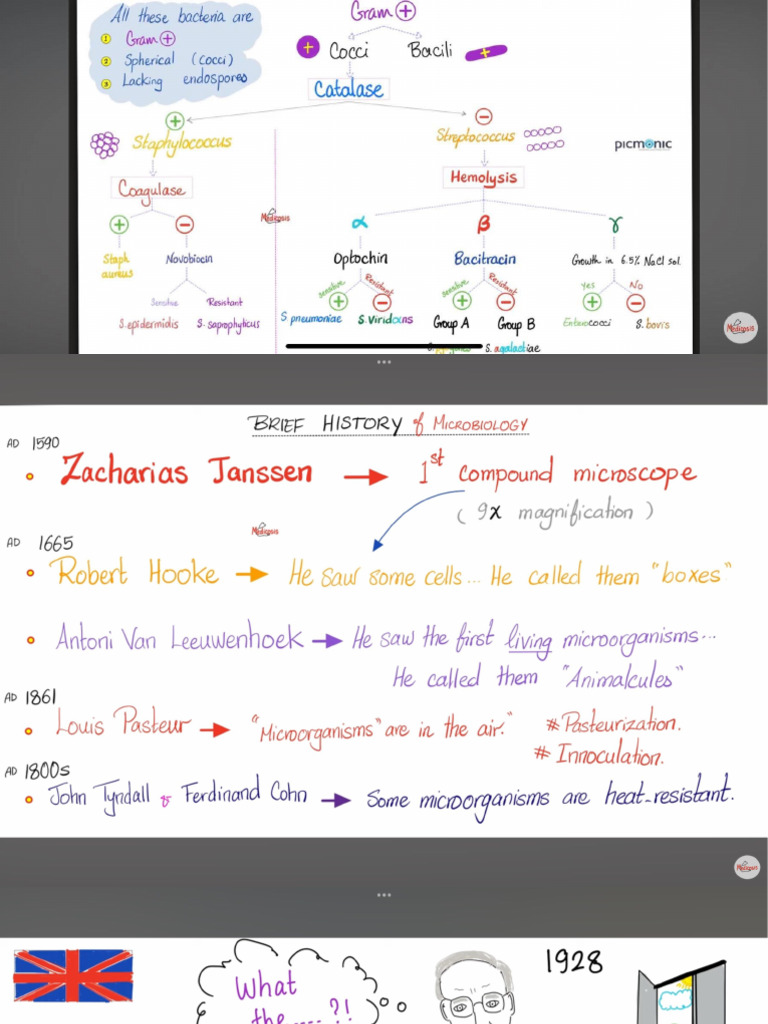 All these bacteria are
1 Gram +
2 Spherical (cocci)
3 Lacking endospores
Gram +
+ Cocci Bacili +
Catalase
+ −
Staphylococcus Streptococcus
picmonic
Coagulase Hemolysis
Medicosis
+ − α β γ
Staph aureus Novobiocin Optochin Bacitracin Growth in 6.5% NaCl sol.
sensitive Resistant sensitive Resistant Yes No
Sensitive Resistant + − + − + −
S.epidermidis S.saprophyticus S pneumoniae S.Viridans Group A Group B Enterococci S.bovis
S. agalactiae
Medicosis
BRIEF HISTORY of MICROBIOLOGY
AD 1590
Zacharias Janssen → 1st compound microscope
(9x magnification)
Medicosis
AD 1665
Robert Hooke → He saw some cells... He called them "boxes"
Antoni Van Leeuwenhoek → He saw the first living microorganisms...
He called them "Animalcules"
AD 1861
Louis Pasteur → "Microorganisms" are in the air." # Pasteurization.
# Innoculation.
AD 1800s
John Tyndall & Ferdinand Cohn → Some microorganisms are heat-resistant.
Medicosis
1928
What
the ....?!